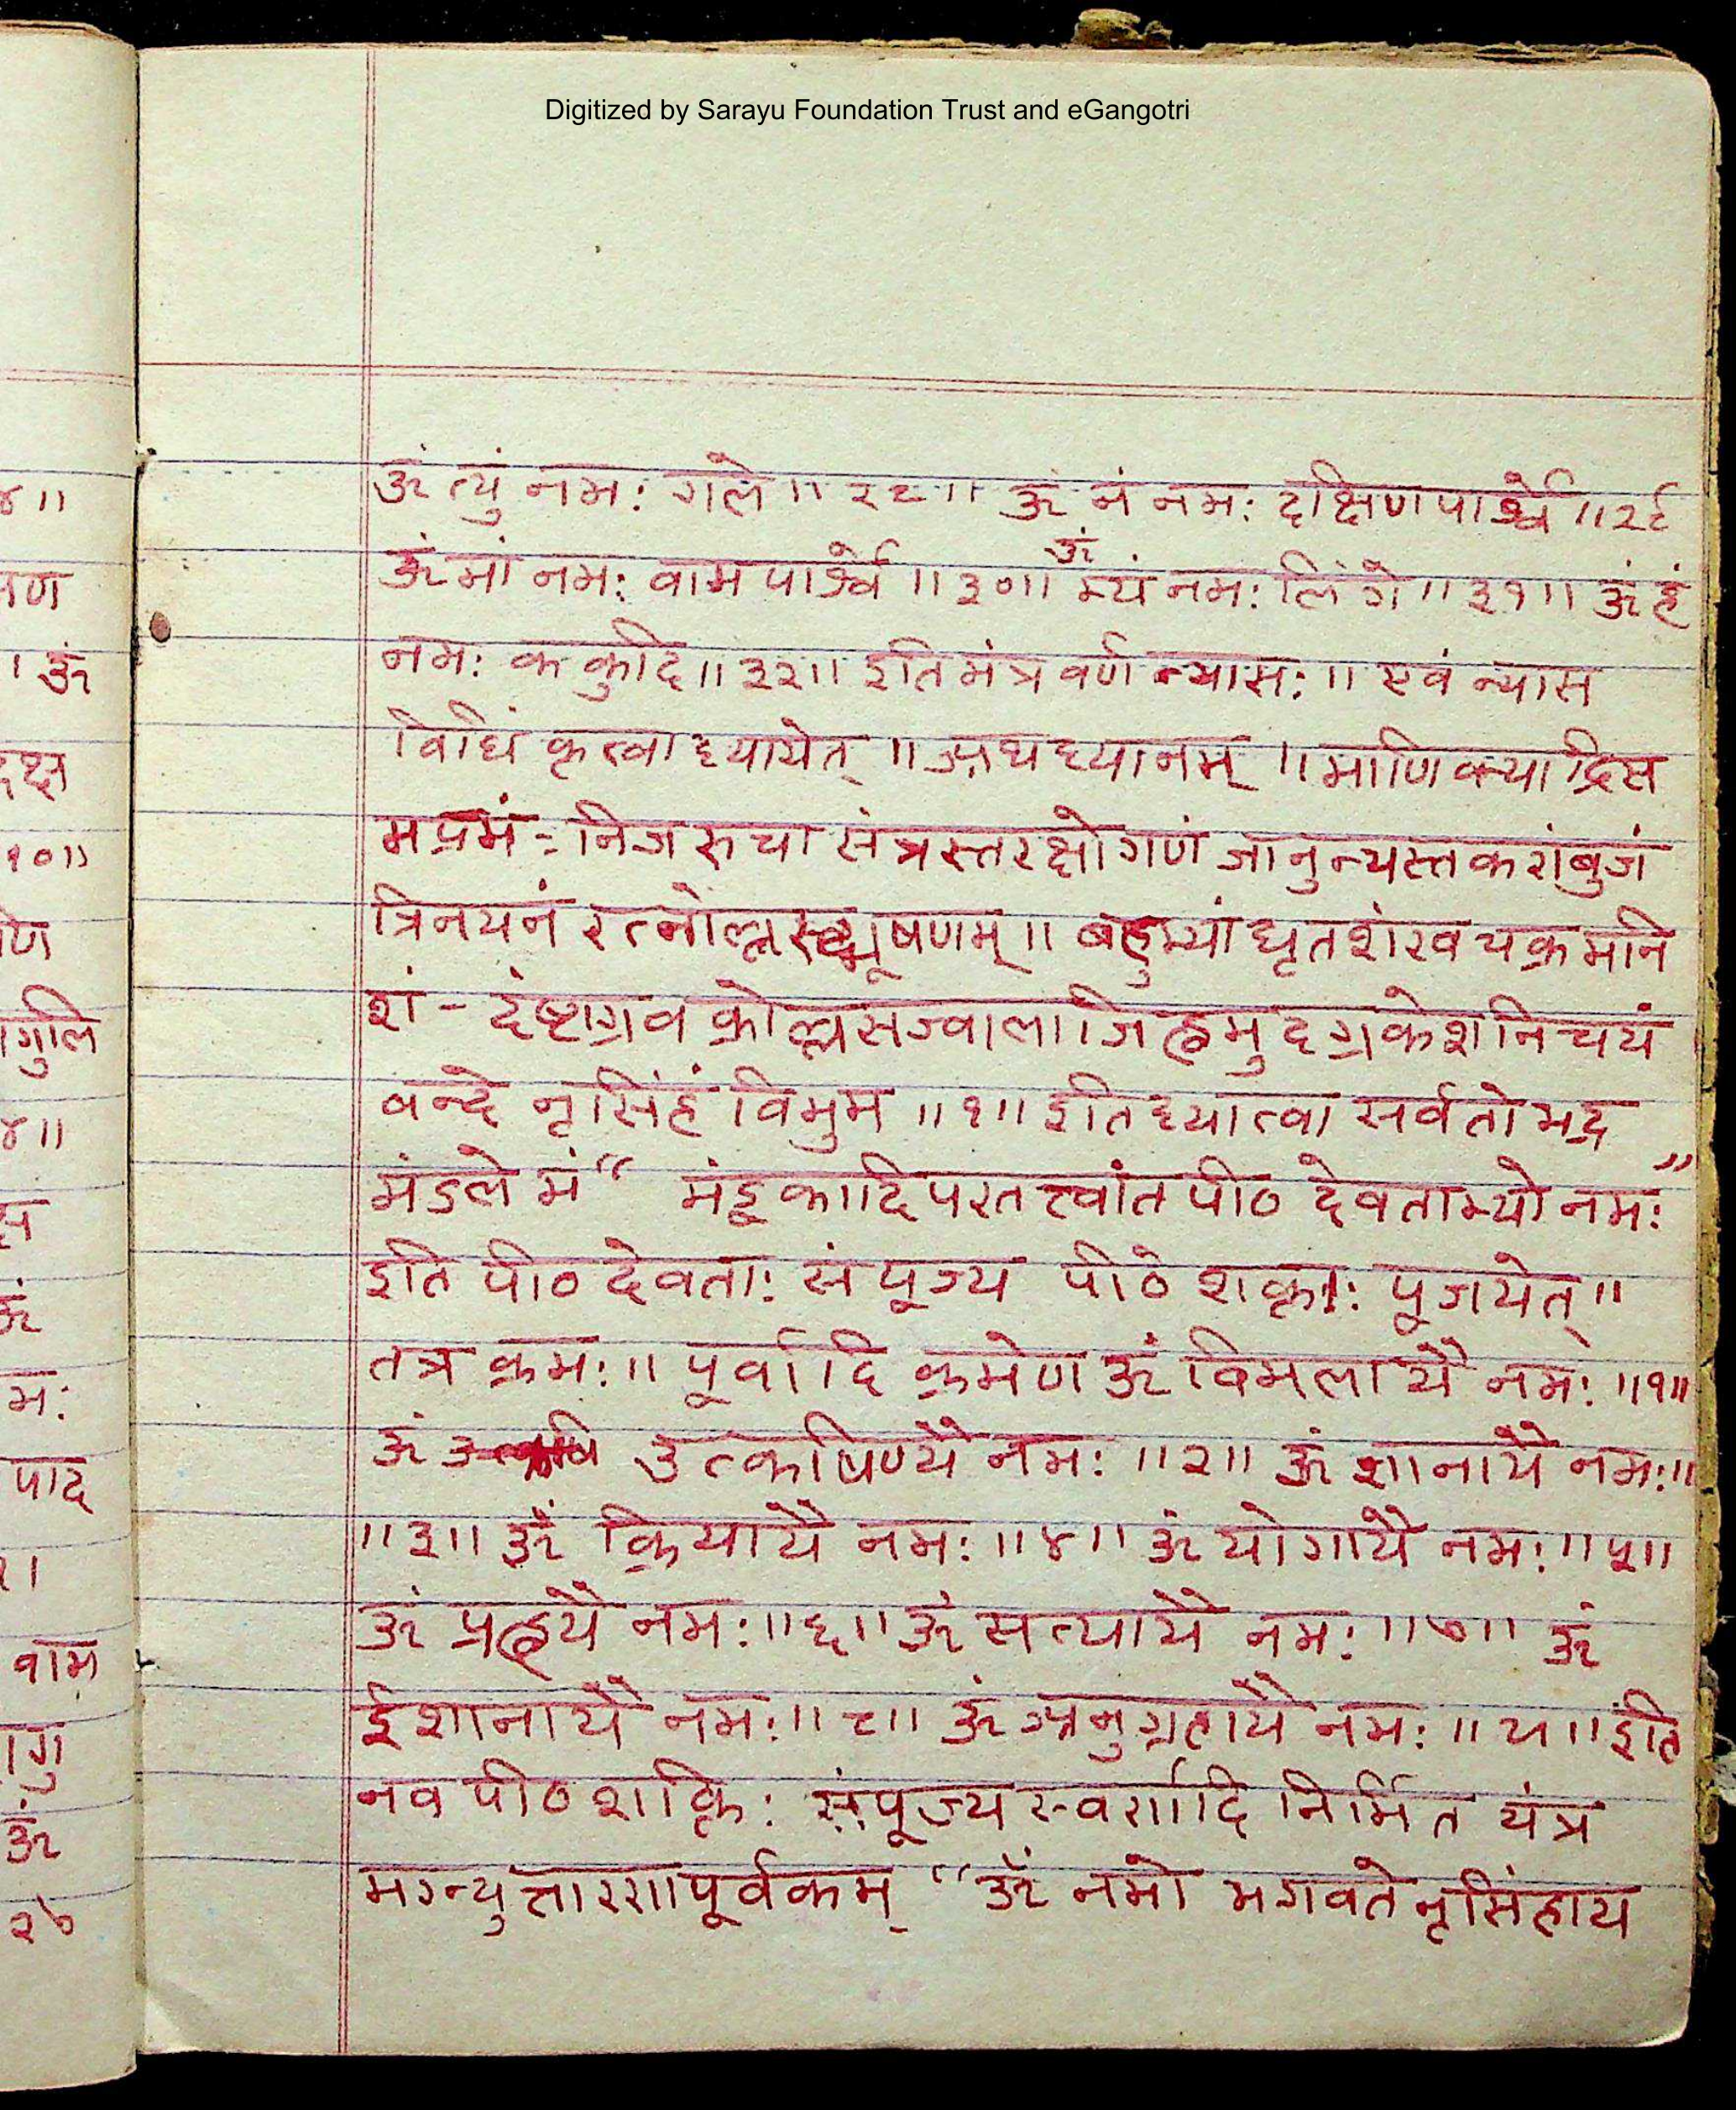 Digitized by Sarayu Foundation Trust and eGangotri
ॐ त्युं नमः गले ॥ २८ ॥ ॐ नं नमः दक्षिण पार्श्वे ॥ २९
ॐ मां नमः वाम पार्श्वे ॥ ३० ॥ ॐ म्यं नमः लिंगे ॥ ३१ ॥ ॐ हं
नमः ककुदि ॥ ३२ ॥ इति मंत्र वर्ण न्यासः ॥ एवं न्यास
विधिं कृत्वा ध्यायेत् ॥ अथ ध्यानम् ॥ माणिक्याद्रिस
मप्रभं - निज रुचा संत्रस्तरक्षोगणं जानुन्यस्तकरांबुजं
त्रिनयनं रत्नोल्लसद्भूषणम् ॥ बाहुभ्यां धृतशंखचक्रमनि
शं - दंष्ट्राग्रवक्रोल्लसज्वालाजिह्वमुदग्रकेशनिचयं
वन्दे नृसिंहं विभुम ॥ १ ॥ इति ध्यात्वा सर्वतोभद्र
मंडले मं “ मंडूकादि परतत्त्वांत पीठ देवताभ्यो नमः ”
इति पीठ देवताः संपूज्य पीठे शक्तीः पूजयेत् ॥
तत्र क्रमः ॥ पूर्वादि क्रमेण ॐ विमलायै नमः ॥ १ ॥
ॐ उत्कर्षिण्यै नमः ॥ २ ॥ ॐ ज्ञानायै नमः ॥
॥ ३ ॥ ॐ क्रियायै नमः ॥ ४ ॥ ॐ योगायै नमः ॥ ५ ॥
ॐ प्रह्व्यै नमः ॥ ६ ॥ ॐ सत्यायै नमः ॥ ७ ॥ ॐ
ईशानायै नमः ॥ ८ ॥ ॐ अनुग्रहायै नमः ॥ ९ ॥ इति
नव पीठ शक्तिः संपूज्य स्वर्णादि निर्मित यंत्र
मग्न्युत्तारणपूर्वकम् “ ॐ नमो भगवते नृसिंहाय